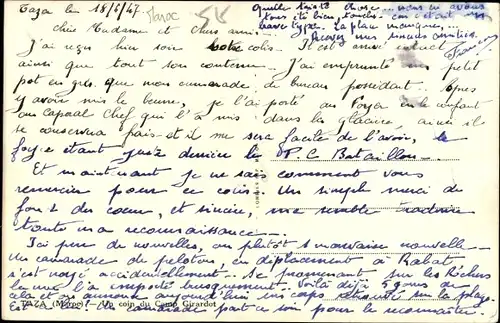 Taza le 18/6/47
Maroc
Quelle triste chose nous en avons
tous été bien touchés car c'était un
brave type. La place manque...
Recevez mes bonnes amitiés.
Chère Madame et chers amis...
J'ai reçu hier soir votre colis. Il est arrivé intact
ainsi que tout son contenu. J'ai emprunté un petit
pot en grès que mon camarade de bureau possédait. Après
y avoir mis le beurre, je l'ai porté au Foyer en le confiant
au Caporal Chef qui l'a mis dans la glacière ainsi il
se conservera frais et il me sera facile de l'avoir, le
foyer étant juste derrière le P.C Bataillon...
Et maintenant je ne sais comment vous
remercier pour ce colis. Un simple merci du
fond du coeur, et sincère, me semble traduire
toute ma reconnaissance...
Ici peu de nouvelles, ou plutôt 1 mauvaise nouvelle
Un camarade de peloton, en déplacement à Rabat
s'est noyé accidentellement. Se promenant sur les Rochers
la mer l'a emporté brusquement. Voilà déjà 5 jours de
cela et on annonce aujourd'hui un corps retrouvé sur la plage
est-ce lui? Un camarade part ce soir pour le reconnaître.
TAZA (Maroc) - Un coin du Camp Girardot